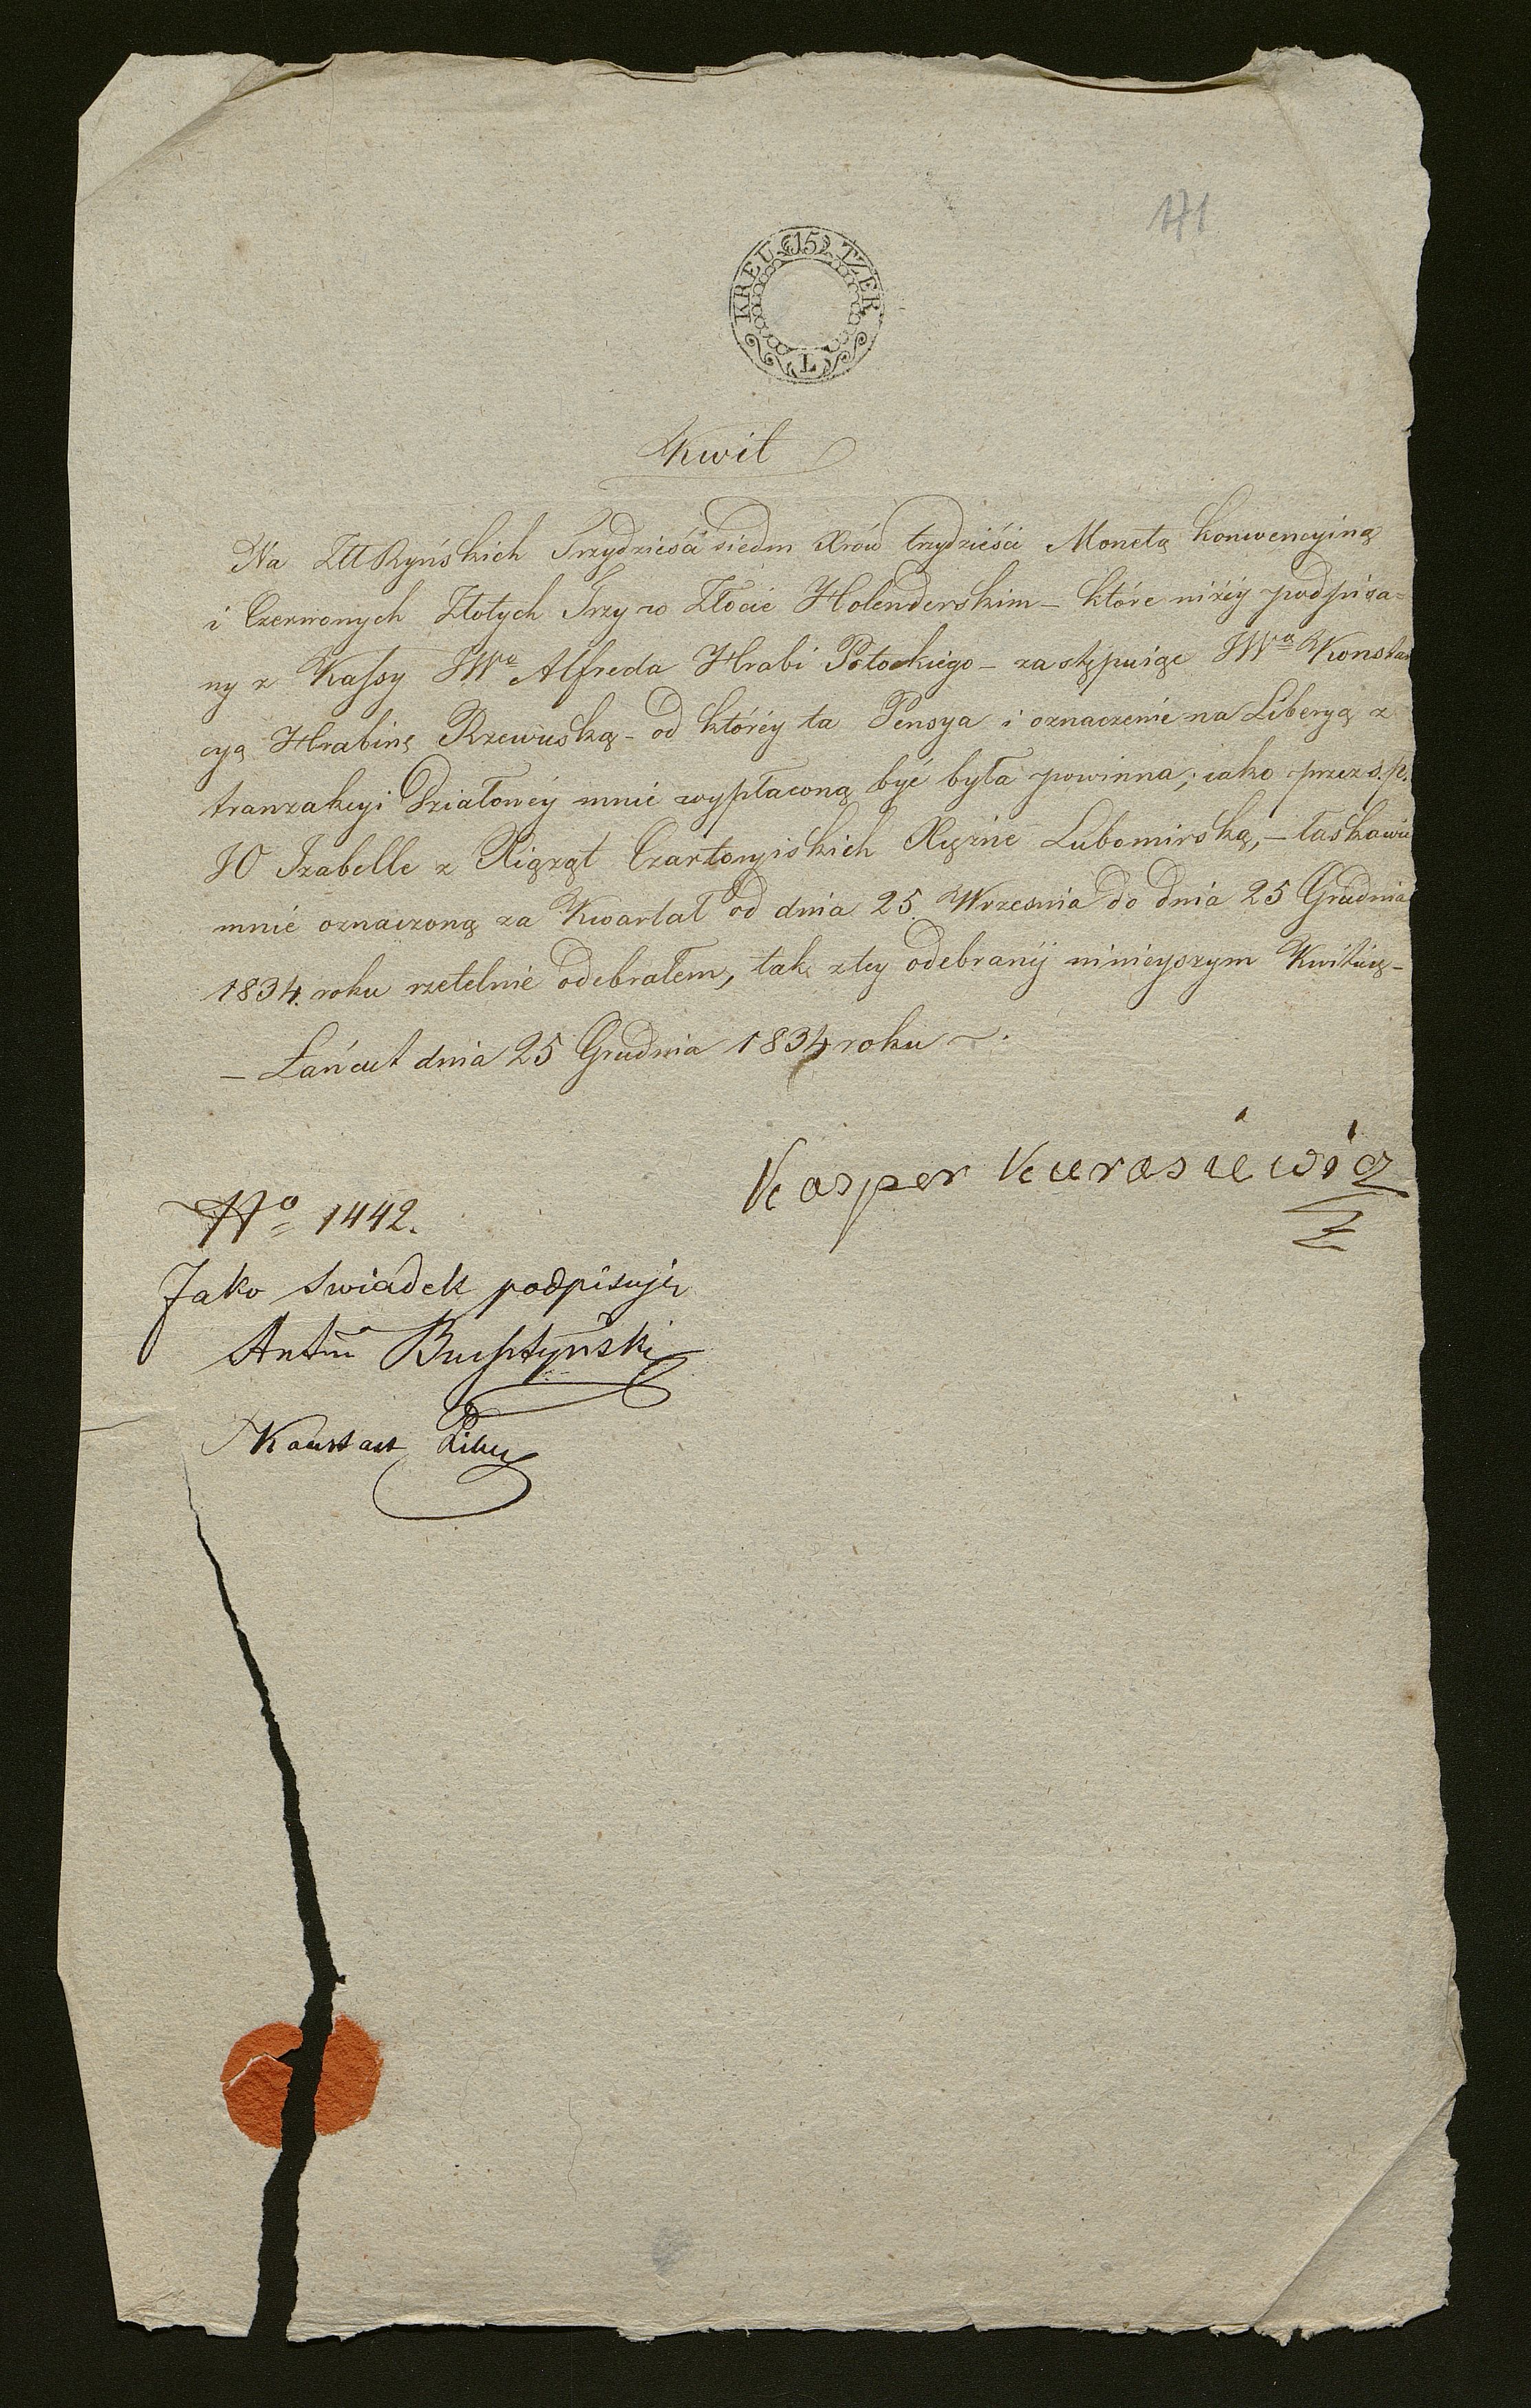 171
KREUTZER 15 L
Kwit
Na Złt Ryńskich Trzydzieści siedm Xrów trzydzieści Monetą konwencyiną
i Czerwonych Złotych Trzy w Złocie Holenderskim – które niżéy podpisa=
ny z Kassy JWo Alfreda Hrabi Potockiego – zastępuiąc JWą Konstan
cyą Hrabinę Rzewuską – od któréy ta Pensya i oznaczenie na Liberyą z
tranzakcyi Działowéy mnie wypłaconą być była powinna; iako przez s.p.
JO Izabelle z Xiążąt Czartoryiskich Xiężne Lubomirską, – łaskawie
mnie oznaczoną za Kwartał od dnia 25 Wrzesnia do dnia 25 Grudnia
1834. roku rzetelnie odebrałem, tak z téy odebranéy ninieyszym Kwituię –
– Łańcut dnia 25 Grudnia 1834 roku –.
Kasper Kurasiewicz
No 1442.
Jako swiadek podpisuję
Antoni
Konstant